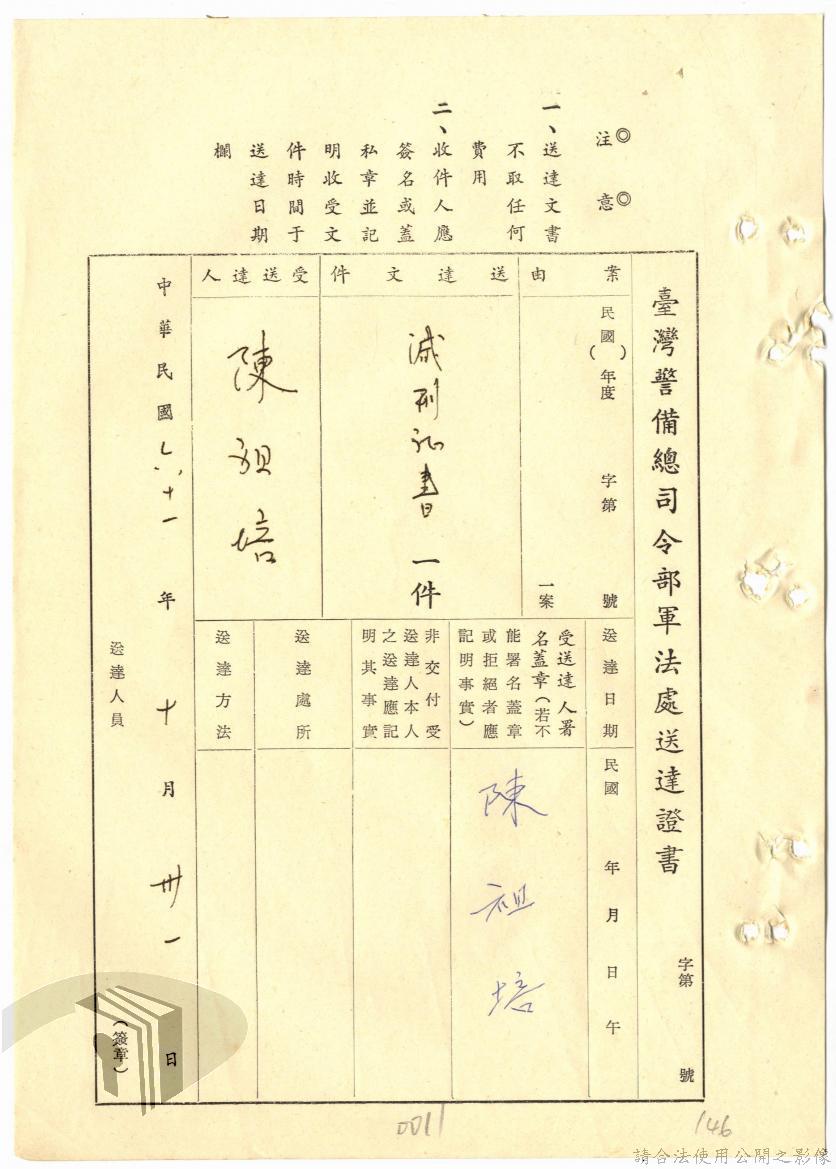 ◎注意◎
一、送達文書
不取任何
費用
二、收件人應
簽名或蓋
私章並記
明收受文
件時間于
送達日期
欄
臺灣警備總司令部軍法處送達證書
字第　號
案由
民國（　）年度　字第　號
一案
送達文件
減刑证書一件
受送達人
陳祖培
送達日期
民國　年　月　日　午
受送達人署
名蓋章（若不
能署名蓋章
或拒絕者應
記明事實）
陳祖培
非交付受
送達人本人
之送達應記
明其事實
送達處所
送達方法
中華民國六十一年十月卅一日
送達人員
（簽章）
0011
146
請合法使用公開之影像